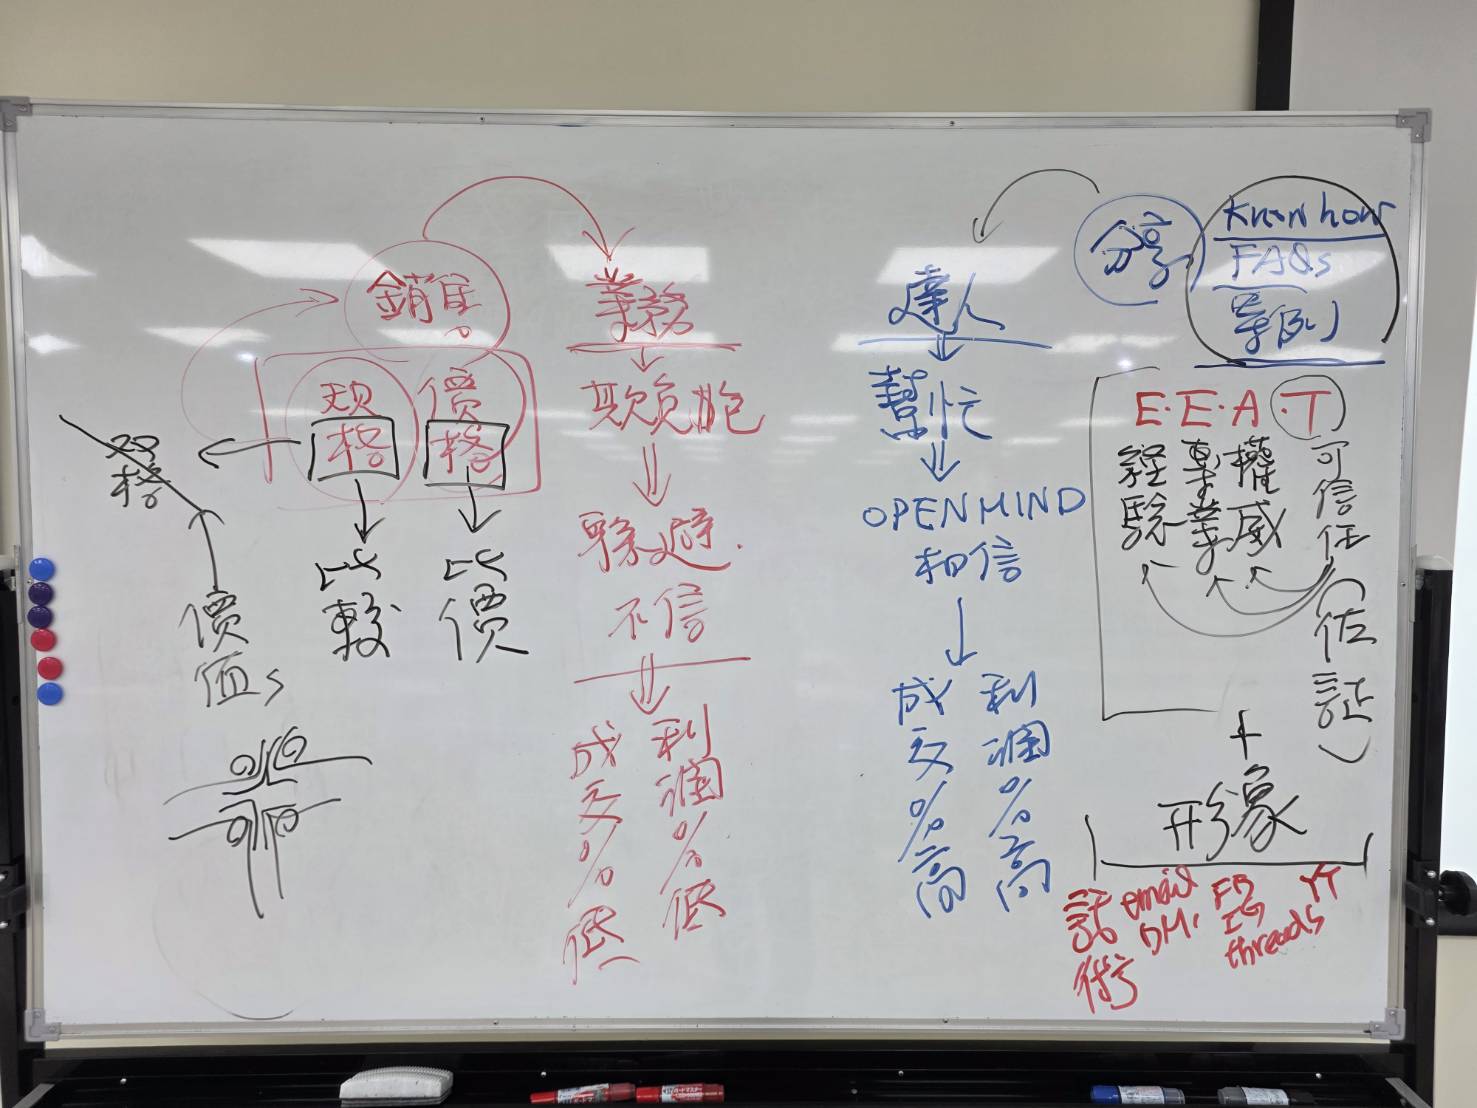 銷售
規格
價格
双格
比較
比價
價值s
業務
欺負跑
躲避
不信
成交%低
利潤%低
達人
幫忙
OPEN MIND
相信
成交%高
利潤%高
分享
Know how
FAQs
案例
E.E.A.T
經驗
專業
權威
可信任
(佐証)
+
形象
話術
email
DM
FB
IG
threads
YT